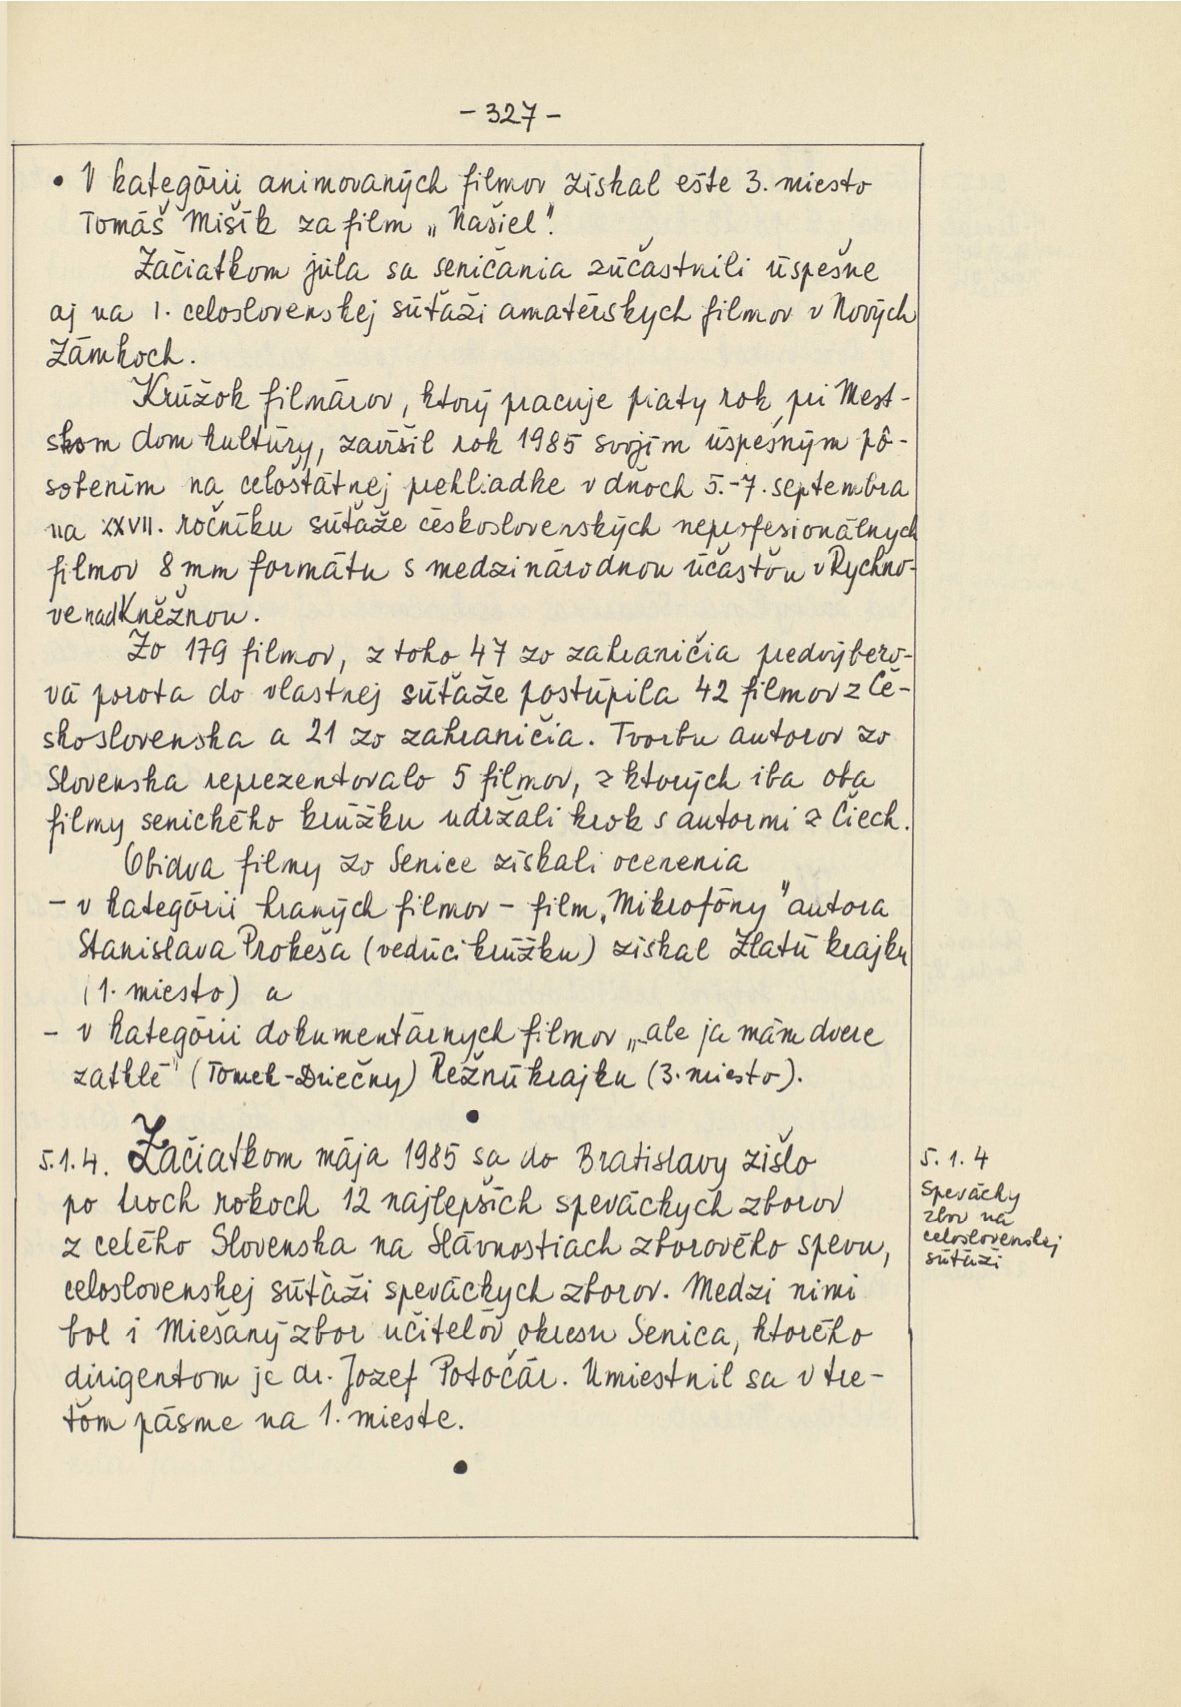 - 327 -
• V kategórii animovaných filmov získal ešte 3. miesto
Tomáš Mišík za film „Našiel".
Začiatkom júla sa seničania zúčastnili úspešne
aj na I. celoslovenskej súťaži amatérskych filmov v Nových
Zámkoch.
Krúžok filmárov, ktorý pracuje piaty rok pri Mest-
skom dom kultúry, zavŕšil rok 1985 svojím úspešným pô-
sobením na celoštátnej prehliadke v dňoch 5.-7. septembra
na XXVII. ročníku súťaže československých neprofesionálnych
filmov 8 mm formátu s medzinárodnou účasťou v Rychno-
ve nad Kněžnou.
Zo 179 filmov, z toho 47 zo zahraničia predvýbero-
vá porota do vlastnej súťaže postúpila 42 filmov z Če-
skoslovenska a 21 zo zahraničia. Tvorbu autorov zo
Slovenska reprezentovalo 5 filmov, z ktorých iba oba
filmy senického krúžku udržali krok s autormi z Čiech.
Obidva filmy zo Senice získali ocenenia
- v kategórii hraných filmov - film „Mikrofóny" autora
Stanislava Prokeša (vedúci krúžku) získal Zlatú krajku
(1. miesto) a
- v kategórii dokumentárnych filmov „ale ja mám dvere
zatklé" (Tomek-Driečny) Režnú krajku (3. miesto).
•
5.1.4. Začiatkom mája 1985 sa do Bratislavy zišlo
po troch rokoch 12 najlepších speváckych zborov
z celého Slovenska na Slávnostiach zborového spevu,
celoslovenskej súťaži speváckych zborov. Medzi nimi
bol i Miešaný zbor učiteľov okresu Senica, ktorého
dirigentom je dr. Jozef Potočár. Umiestnil sa v tre-
ťom pásme na 1. mieste.
•
5. 1. 4
Spevácky
zbor na
celoslovenskej
súťaži